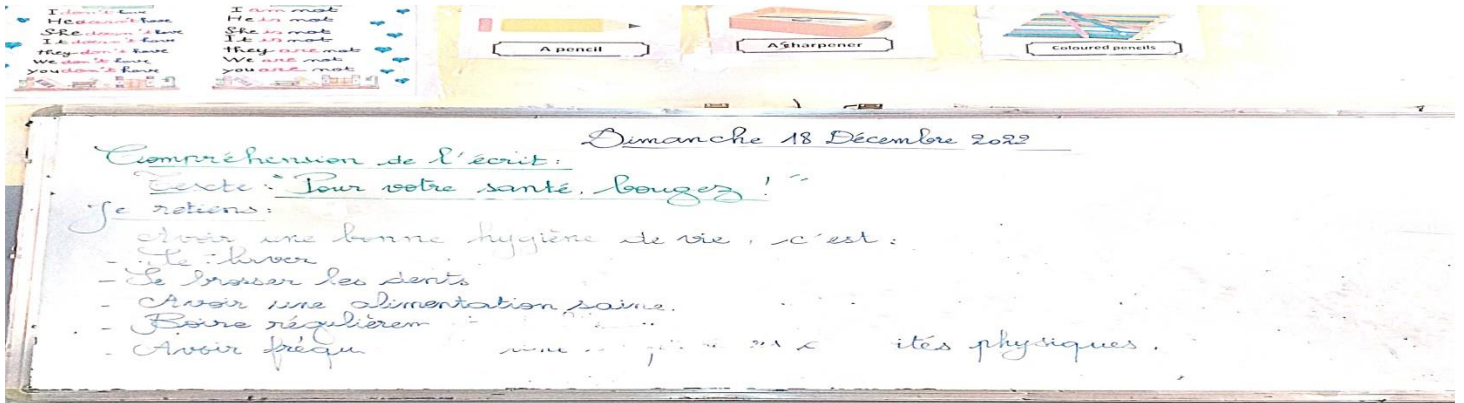 I don't have
He doesn't have
She doesn't have
It doesn't have
they don't have
We don't have
you don't have
I am not
He is not
She is not
It is not
they are not
We are not
you are not
A pencil
A sharpener
Coloured pencils
Dimanche 18 Décembre 2022
Compréhension de l'écrit:
Texte: "Pour votre santé, bougez!"
Je retiens:
Avoir une bonne hygiène de vie, c'est:
- Se laver
- Se brosser les dents
- Avoir une alimentation saine.
- Boire régulièrem
- Avoir fréqu ités physiques.